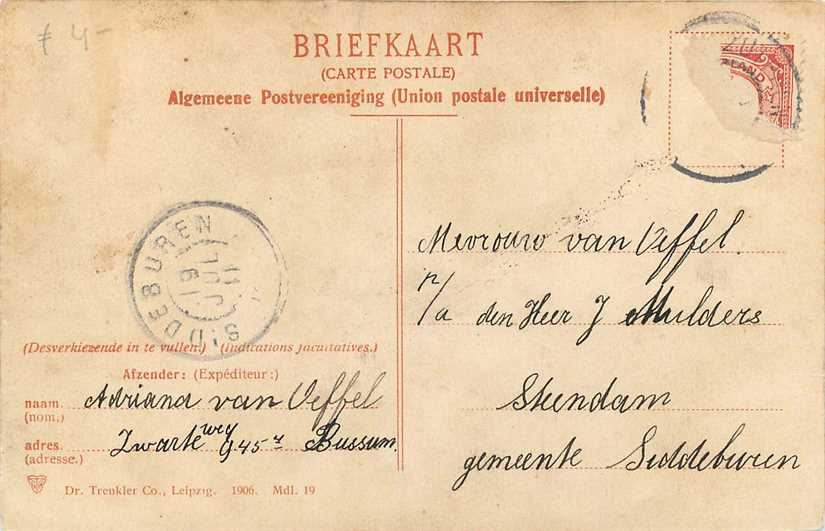 ƒ 4-
BRIEFKAART
(CARTE POSTALE)
Algemeene Postvereeniging (Union postale universelle)
SIDDEBUREN
Mevrouw van Oeffel.
p/a den Heer J Mulders
Steendam
gemeente Siddeburen
(Desverkiezende in te vullen.) (Indications facultatives.)
Afzender: (Expéditeur:)
naam Adriana van Oeffel
(nom.)
adres. Zwarte weg 45 Bussum.
(adresse.)
Dr. Trenkler Co., Leipzig. 1906. Mdl. 19